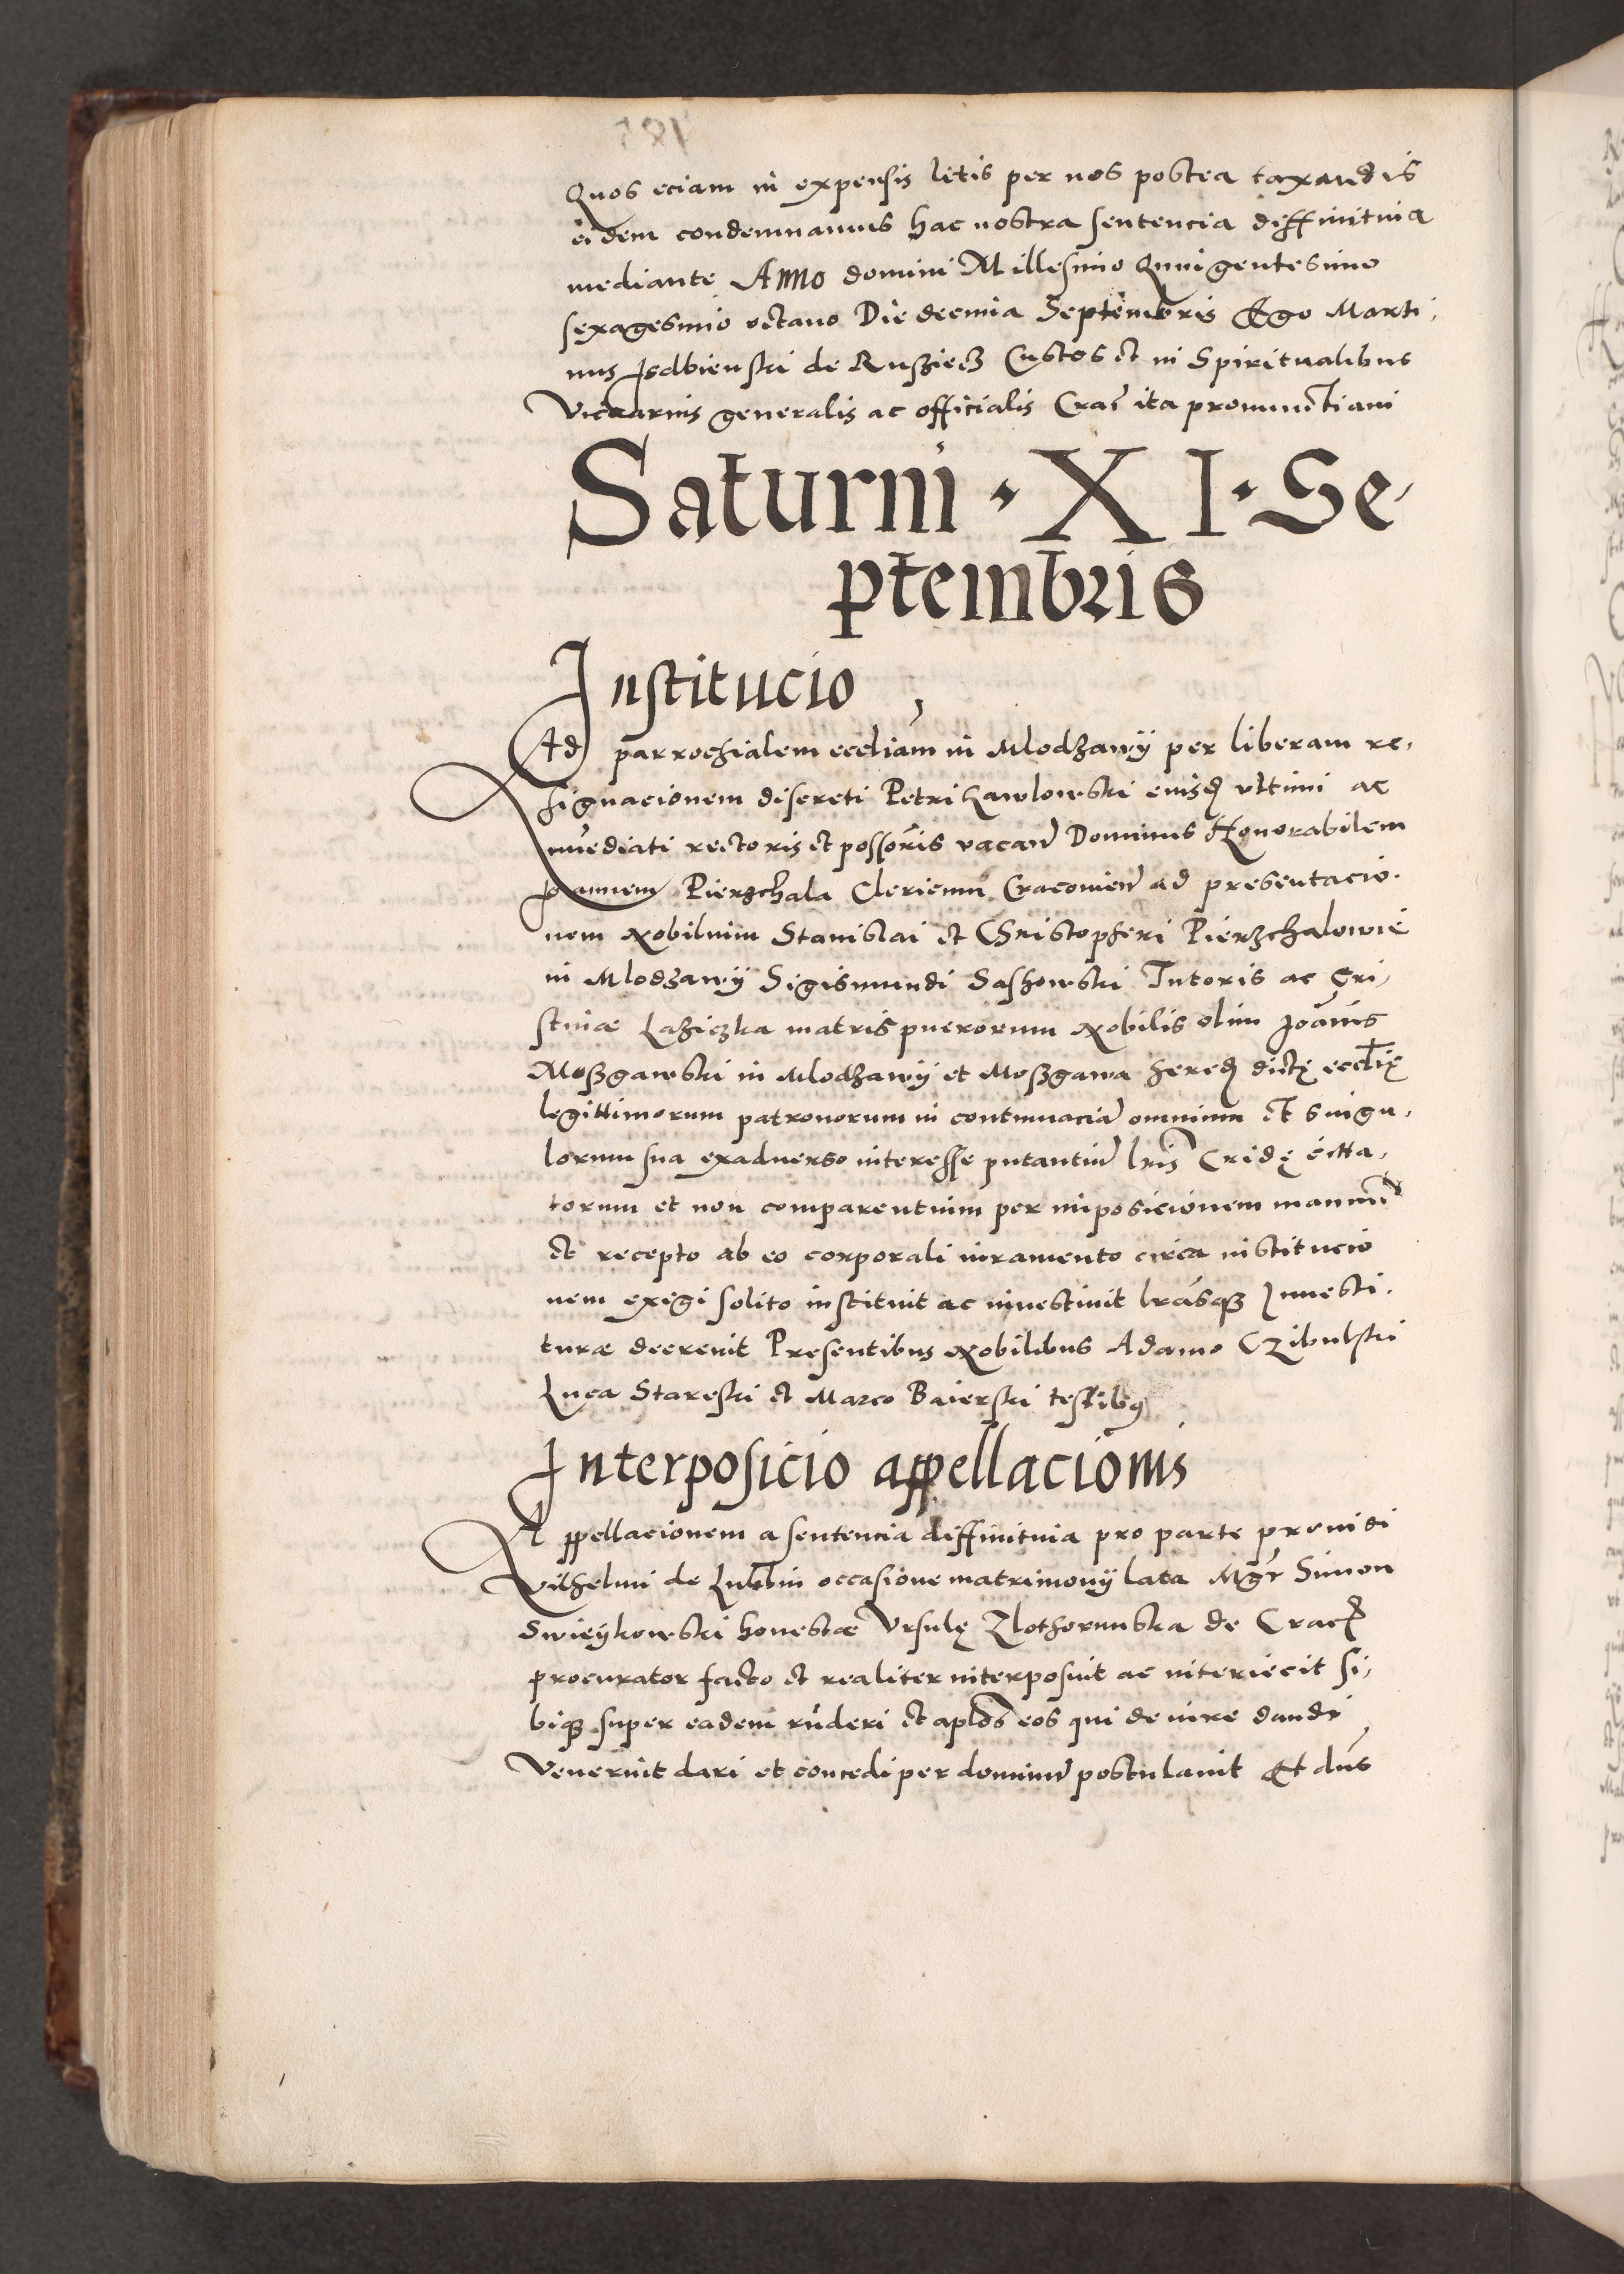 Quos eciam in expensis letis per nos postea taxandis
eidem condemnamus hac nostra sentencia diffinitiua
mediante Anno domini Millesimo Quingentesimo
sexagesimo octauo Die decima Septembris Ego Marti,
nus Isdbienski de Rusziecz Custos et in Spiritualibus
Vicaarius generalis ac officialis Crac̄ ita pronunctiaui
Saturni · XI · Se,
ptembris
Institucio,
Ad parrochialem eccliam in Mlodzawy per liberam re,
signacionem discreti Petri Lawlowski eiusd ultimi ac
imediati rectoris et possoris vacan̄ Dominus Honorabilem
Joannem Pierzchala Clericum Cracouien̄ ad presentacio.
nem Nobilium Stanislai et Christopheri Pierzchalowie
in Mlodzawy Sigismundi Sashowski Tutoris ac Cri,
stinæ Laziczka matris puerorum Nobilis olim Joānis
Moszgawski in Mlodzawy et Moszgawa hered dictę ecclię
legittimorum patronorum in contumaciā omnium et singu,
lorum sua exaduerso interesse putantiū lris Cridę citta,
torum et non comparentium per imposicionem manuū
et recepto ab eo corporali iuramento circa institucio
nem exigi solito instituit ac inuestiuit lrasq3 Inuesti.
turæ decreuit Presentibus Nobilibus Adamo Czibulski
Luca Stareski et Marco Baierski testibus
Interposicio appellacionis
Appellacionem a sentencia diffinitiua pro parte prouidi
Vilhelmi de Lublin occasione matrimonij lata Mgr Simon
Swieykowski honestæ Vrsulę Zlothorunska de Crac
procurator facto et realiter interposuit ac interiecit si,
biq3 super eadem rūderi et aplos eos qui de iure dandi
Venerint dari et concedi per dominū postulauit Et dns